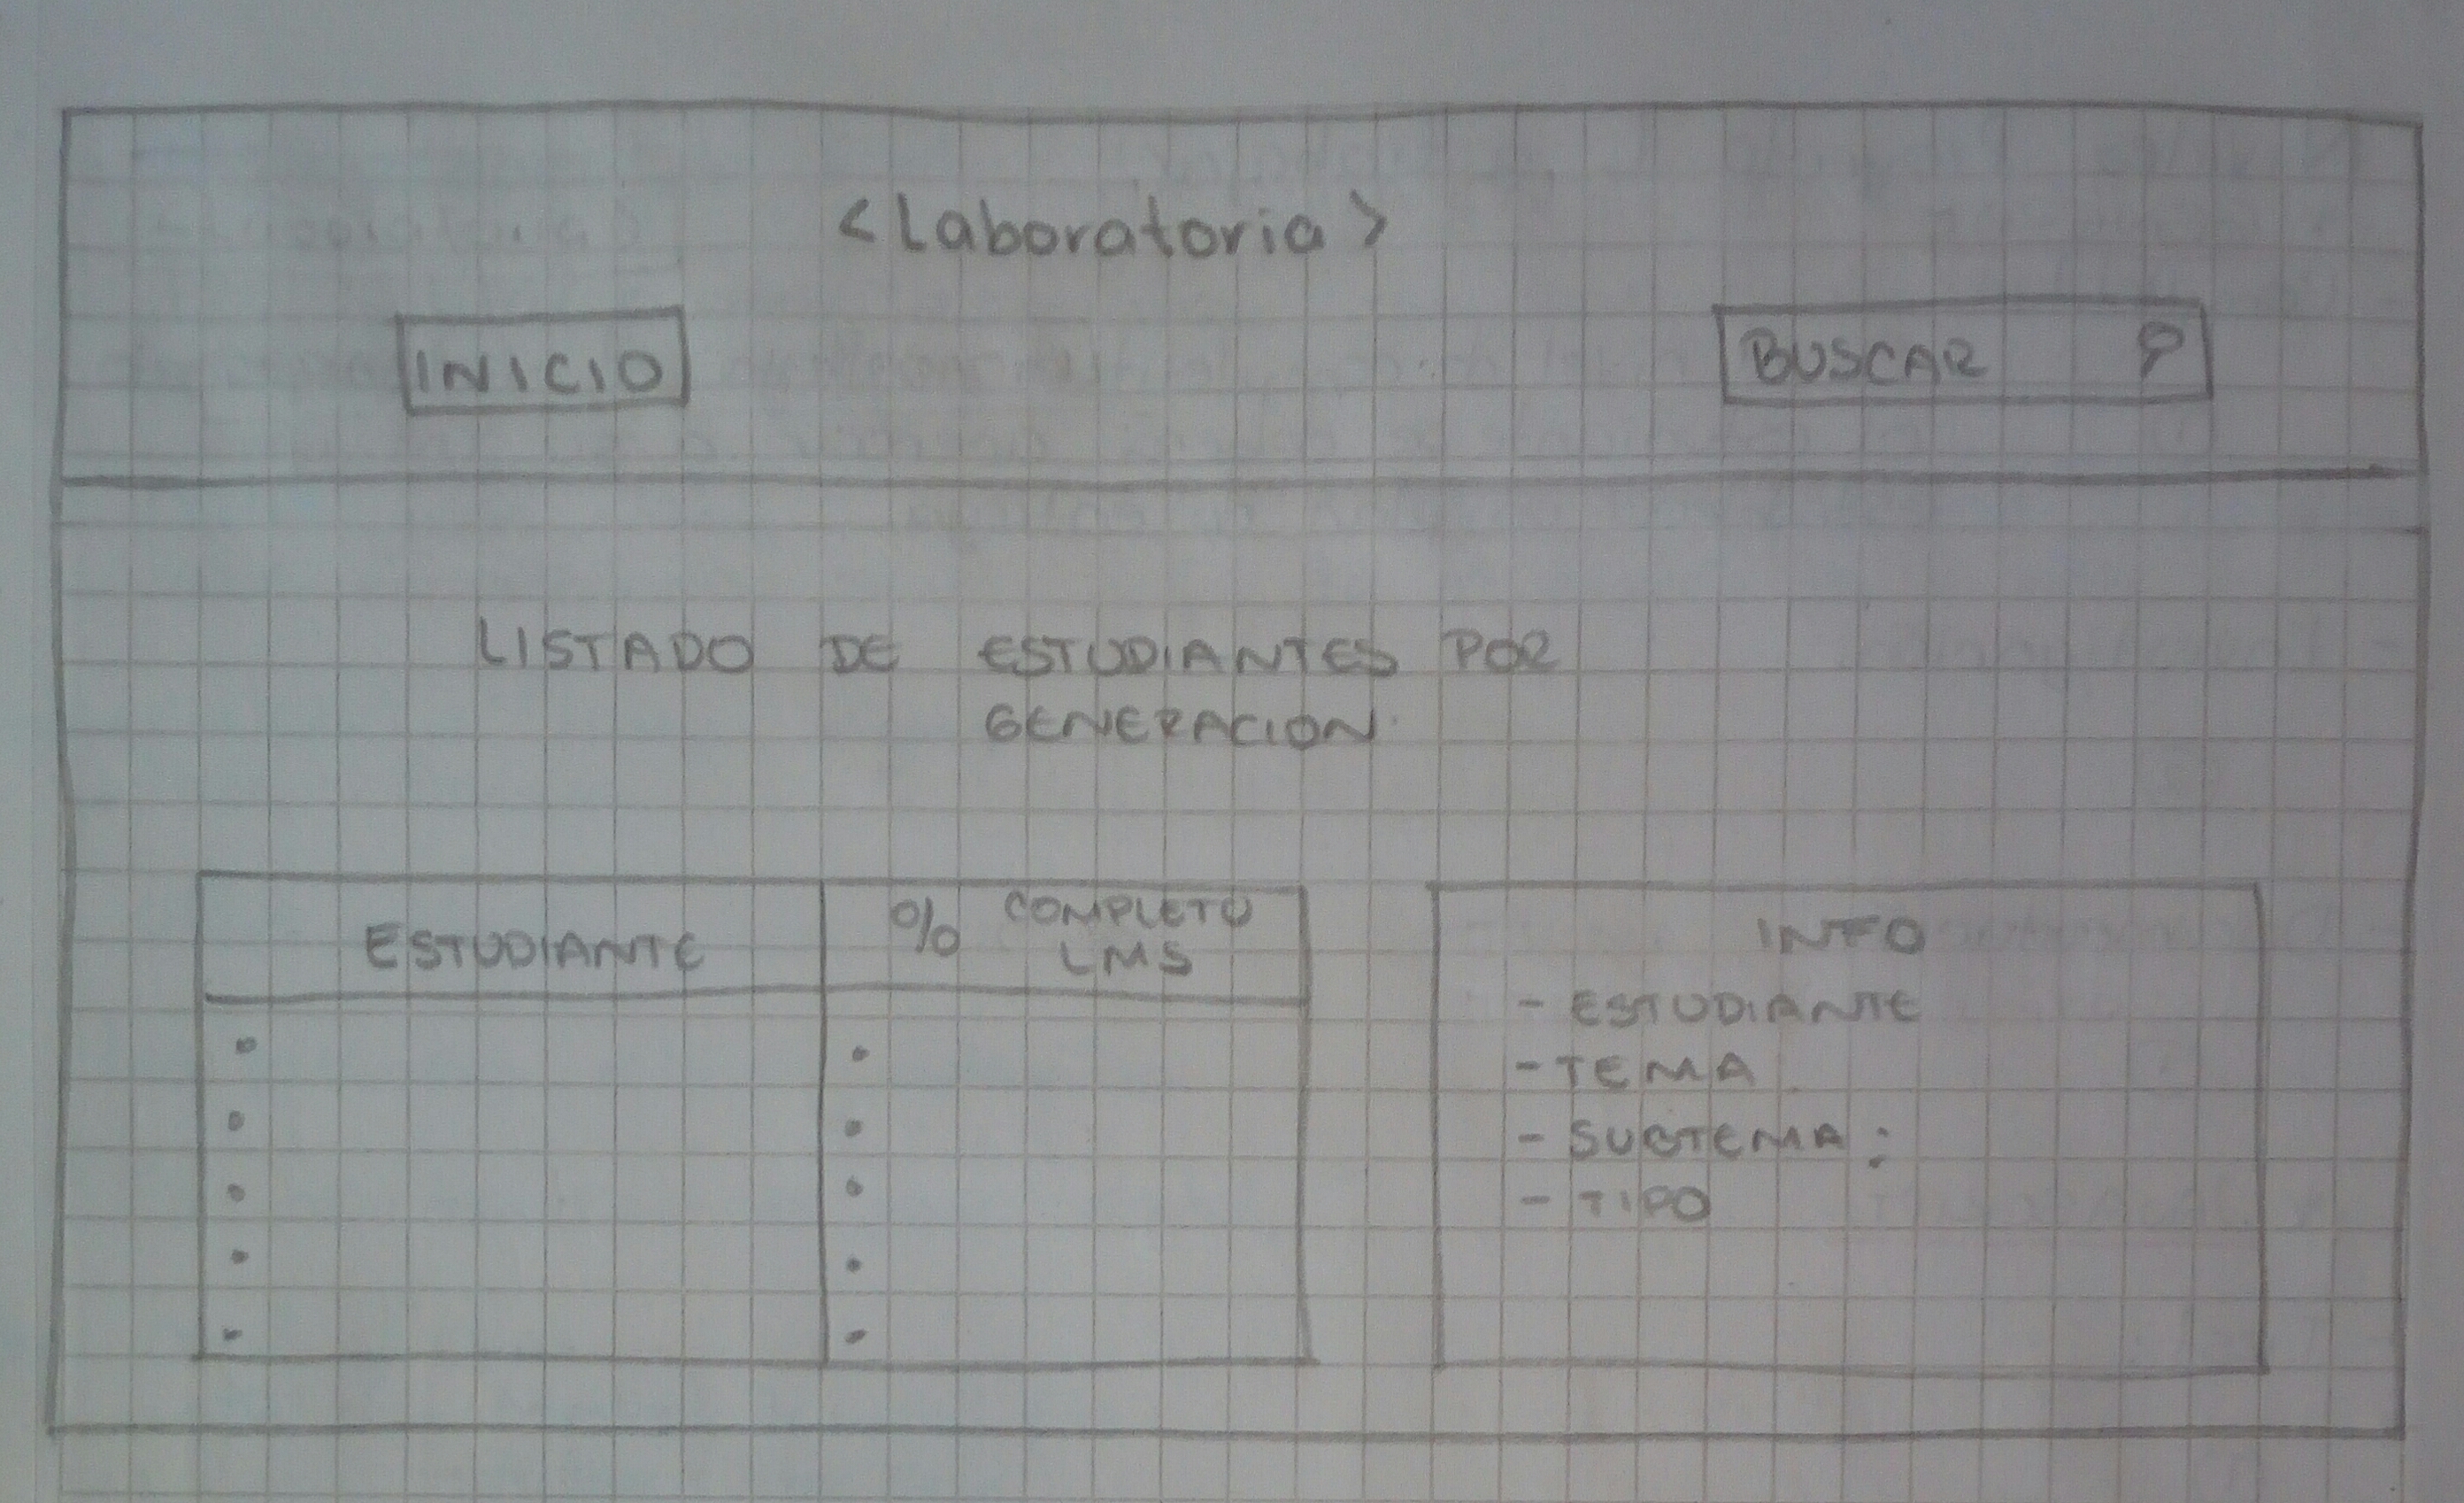 <Laboratoria>
INICIO
BUSCAR
LISTADO DE ESTUDIANTES POR
GENERACION
ESTUDIANTE
% COMPLETO
LMS
INFO
- ESTUDIANTE
- TEMA
- SUBTEMA:
- TIPO